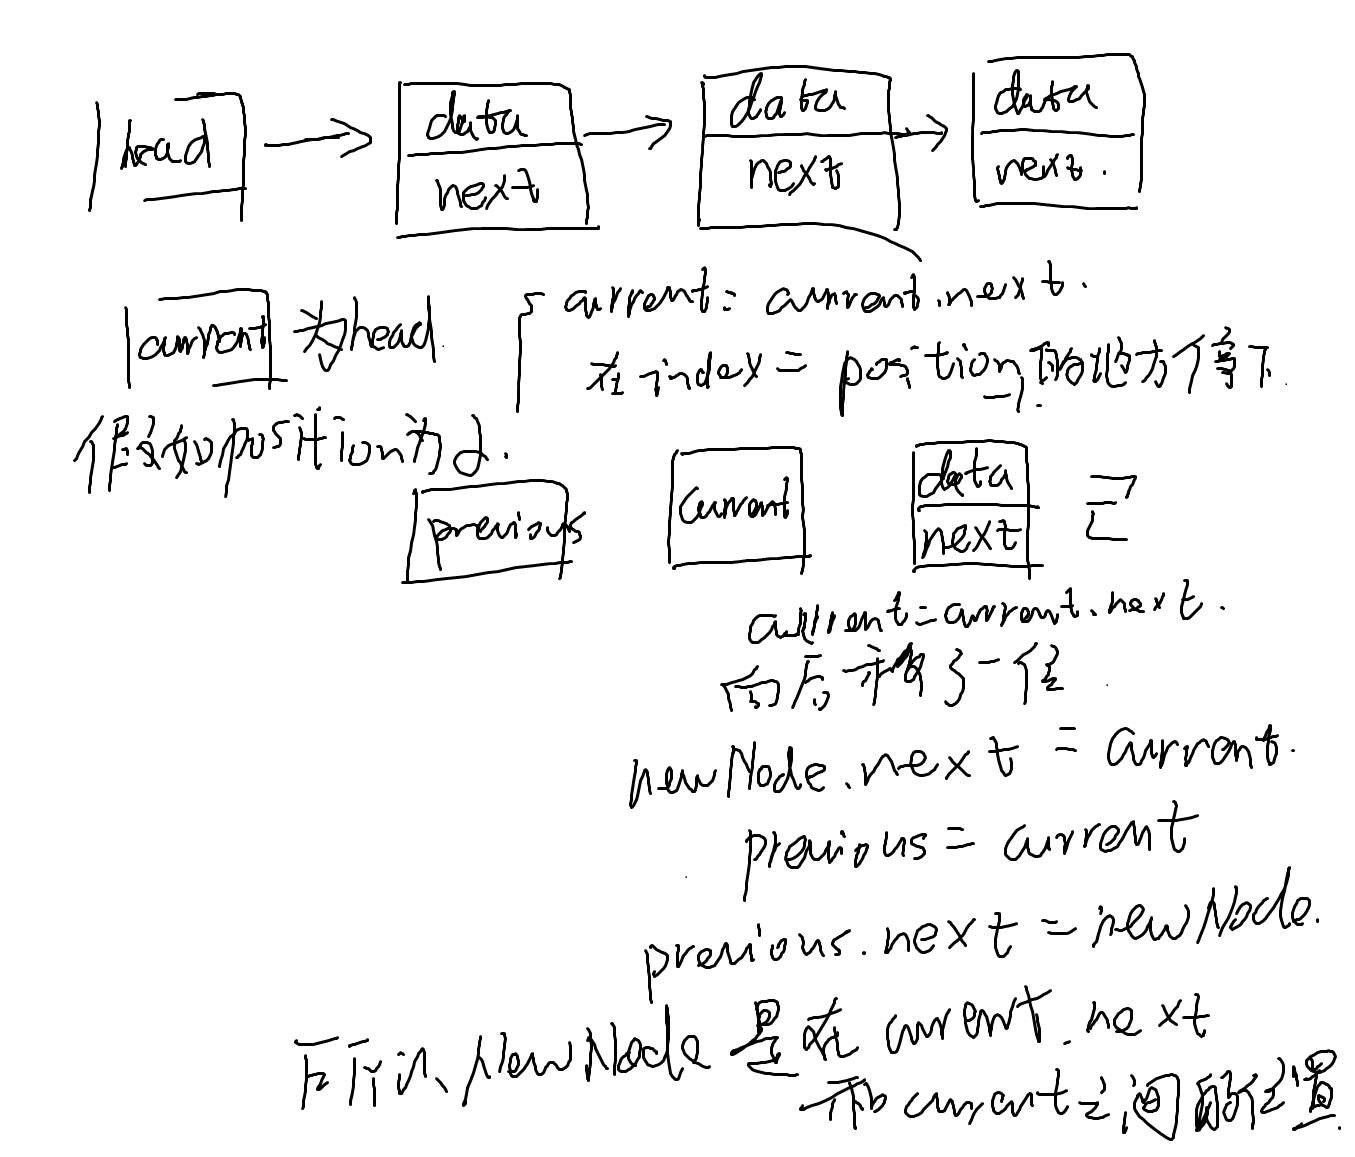 head
data
next
data
next
data
next.
current 为head
current = current.next.
在index = position,的地方停下
假如position为2.
previous
current
data
next
已
current = current.next.
向后移了一位
newNode.next = current.
previous = current
previous.next = newNode.
所以、NewNode是在current.next
和current之间的位置